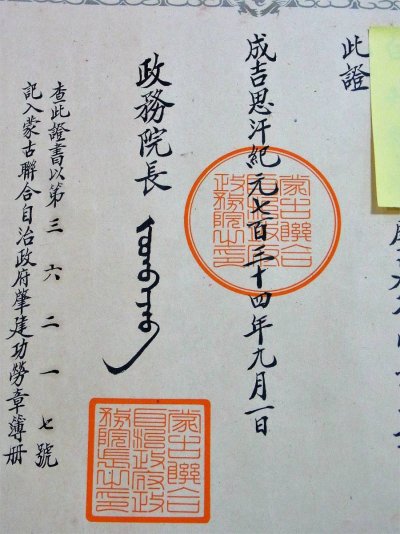 此證
成吉思汗紀元七百三十四年九月一日
蒙古聯合
自治政府
政務院之印
政務院長
蒙古聯合
自治政府政
務院長之印
查此證書以第三六二一七號
記入蒙古聯合自治政府肇建功勞章簿冊